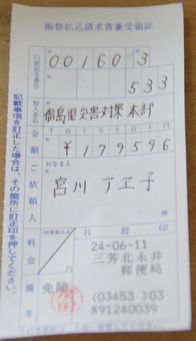 振替払込請求書兼受領証
口座記号番号
00160-3
533
加入者名
福島県災害対策本部
金額
千百十万千百十円
¥179596
ご依頼人
おなまえ
宮川
様
料金
日附印
24-06-11
三芳北永井
郵便局
備考
免除
(03453)03
N91240039
記載事項を訂正した場合は、その箇所に訂正印を押してください。